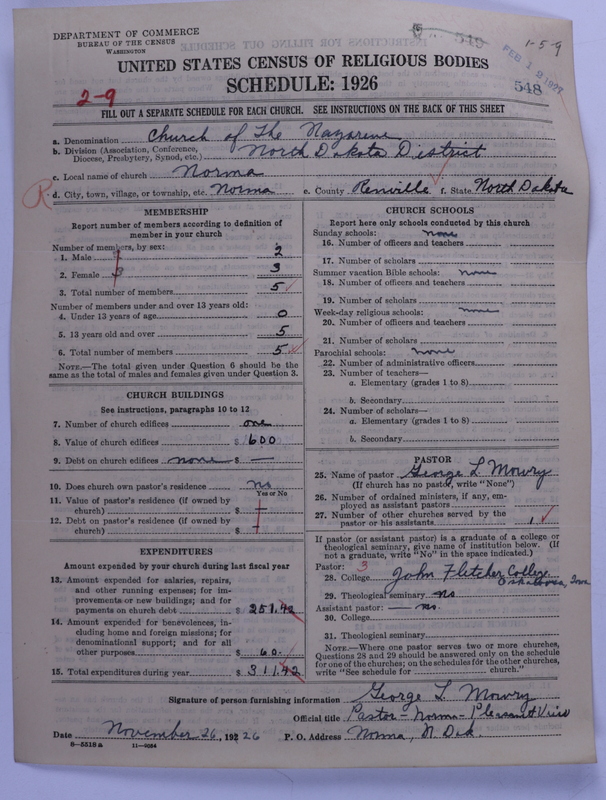 DEPARTMENT OF COMMERCE
BUREAU OF THE CENSUS
WASHINGTON
549
1-5-9
FEB 12 1927
548
UNITED STATES CENSUS OF RELIGIOUS BODIES
SCHEDULE: 1926
2-9
FILL OUT A SEPARATE SCHEDULE FOR EACH CHURCH. SEE INSTRUCTIONS ON THE BACK OF THIS SHEET
a. Denomination Church of The Nazarene
b. Division (Association, Conference, Diocese, Presbytery, Synod, etc.) North Dakota District
c. Local name of church Norma
R d. City, town, village, or township, etc. Norma e. County Renville f. State North Dakota
MEMBERSHIP
Report number of members according to definition of member in your church
Number of members, by sex:
1. Male 2
2. Female 3 3
3. Total number of members 5
Number of members under and over 13 years old:
4. Under 13 years of age 0
5. 13 years old and over 5
6. Total number of members 5
NOTE.—The total given under Question 6 should be the same as the total of males and females given under Question 3.
CHURCH BUILDINGS
See instructions, paragraphs 10 to 12
7. Number of church edifices one
8. Value of church edifices $ 600
9. Debt on church edifices none $ —
10. Does church own pastor's residence no
Yes or No
11. Value of pastor's residence (if owned by church) $ —
12. Debt on pastor's residence (if owned by church) $ —
EXPENDITURES
Amount expended by your church during last fiscal year
13. Amount expended for salaries, repairs, and other running expenses; for improvements or new buildings; and for payments on church debt $ 251.42
14. Amount expended for benevolences, including home and foreign missions; for denominational support; and for all other purposes $ 60.
15. Total expenditures during year $ 311.42
CHURCH SCHOOLS
Report here only schools conducted by this church
Sunday schools: none
16. Number of officers and teachers
17. Number of scholars
Summer vacation Bible schools: none
18. Number of officers and teachers
19. Number of scholars
Week-day religious schools: none
20. Number of officers and teachers
21. Number of scholars
Parochial schools: none
22. Number of administrative officers
23. Number of teachers—
a. Elementary (grades 1 to 8)
b. Secondary
24. Number of scholars—
a. Elementary (grades 1 to 8)
b. Secondary
PASTOR
25. Name of pastor George L. Mowry
(If church has no pastor, write "None")
26. Number of ordained ministers, if any, employed as assistant pastors
27. Number of other churches served by the pastor or his assistants 1
If pastor (or assistant pastor) is a graduate of a college or theological seminary, give name of institution below. (If not a graduate, write "No" in the space indicated.)
Pastor: 3
28. College John Fletcher College Oskaloosa, Iowa
29. Theological seminary no
Assistant pastor: — no.
30. College
31. Theological seminary
NOTE.—Where one pastor serves two or more churches, Questions 28 and 29 should be answered only on the schedule for one of the churches; on the schedules for the other churches, write "See schedule for church."
Signature of person furnishing information George L. Mowry
Official title Pastor - Norma - Pleasant View
Date November 26, 192 26 P. O. Address Norma, N. Dak.
8—5518 a 11—9054